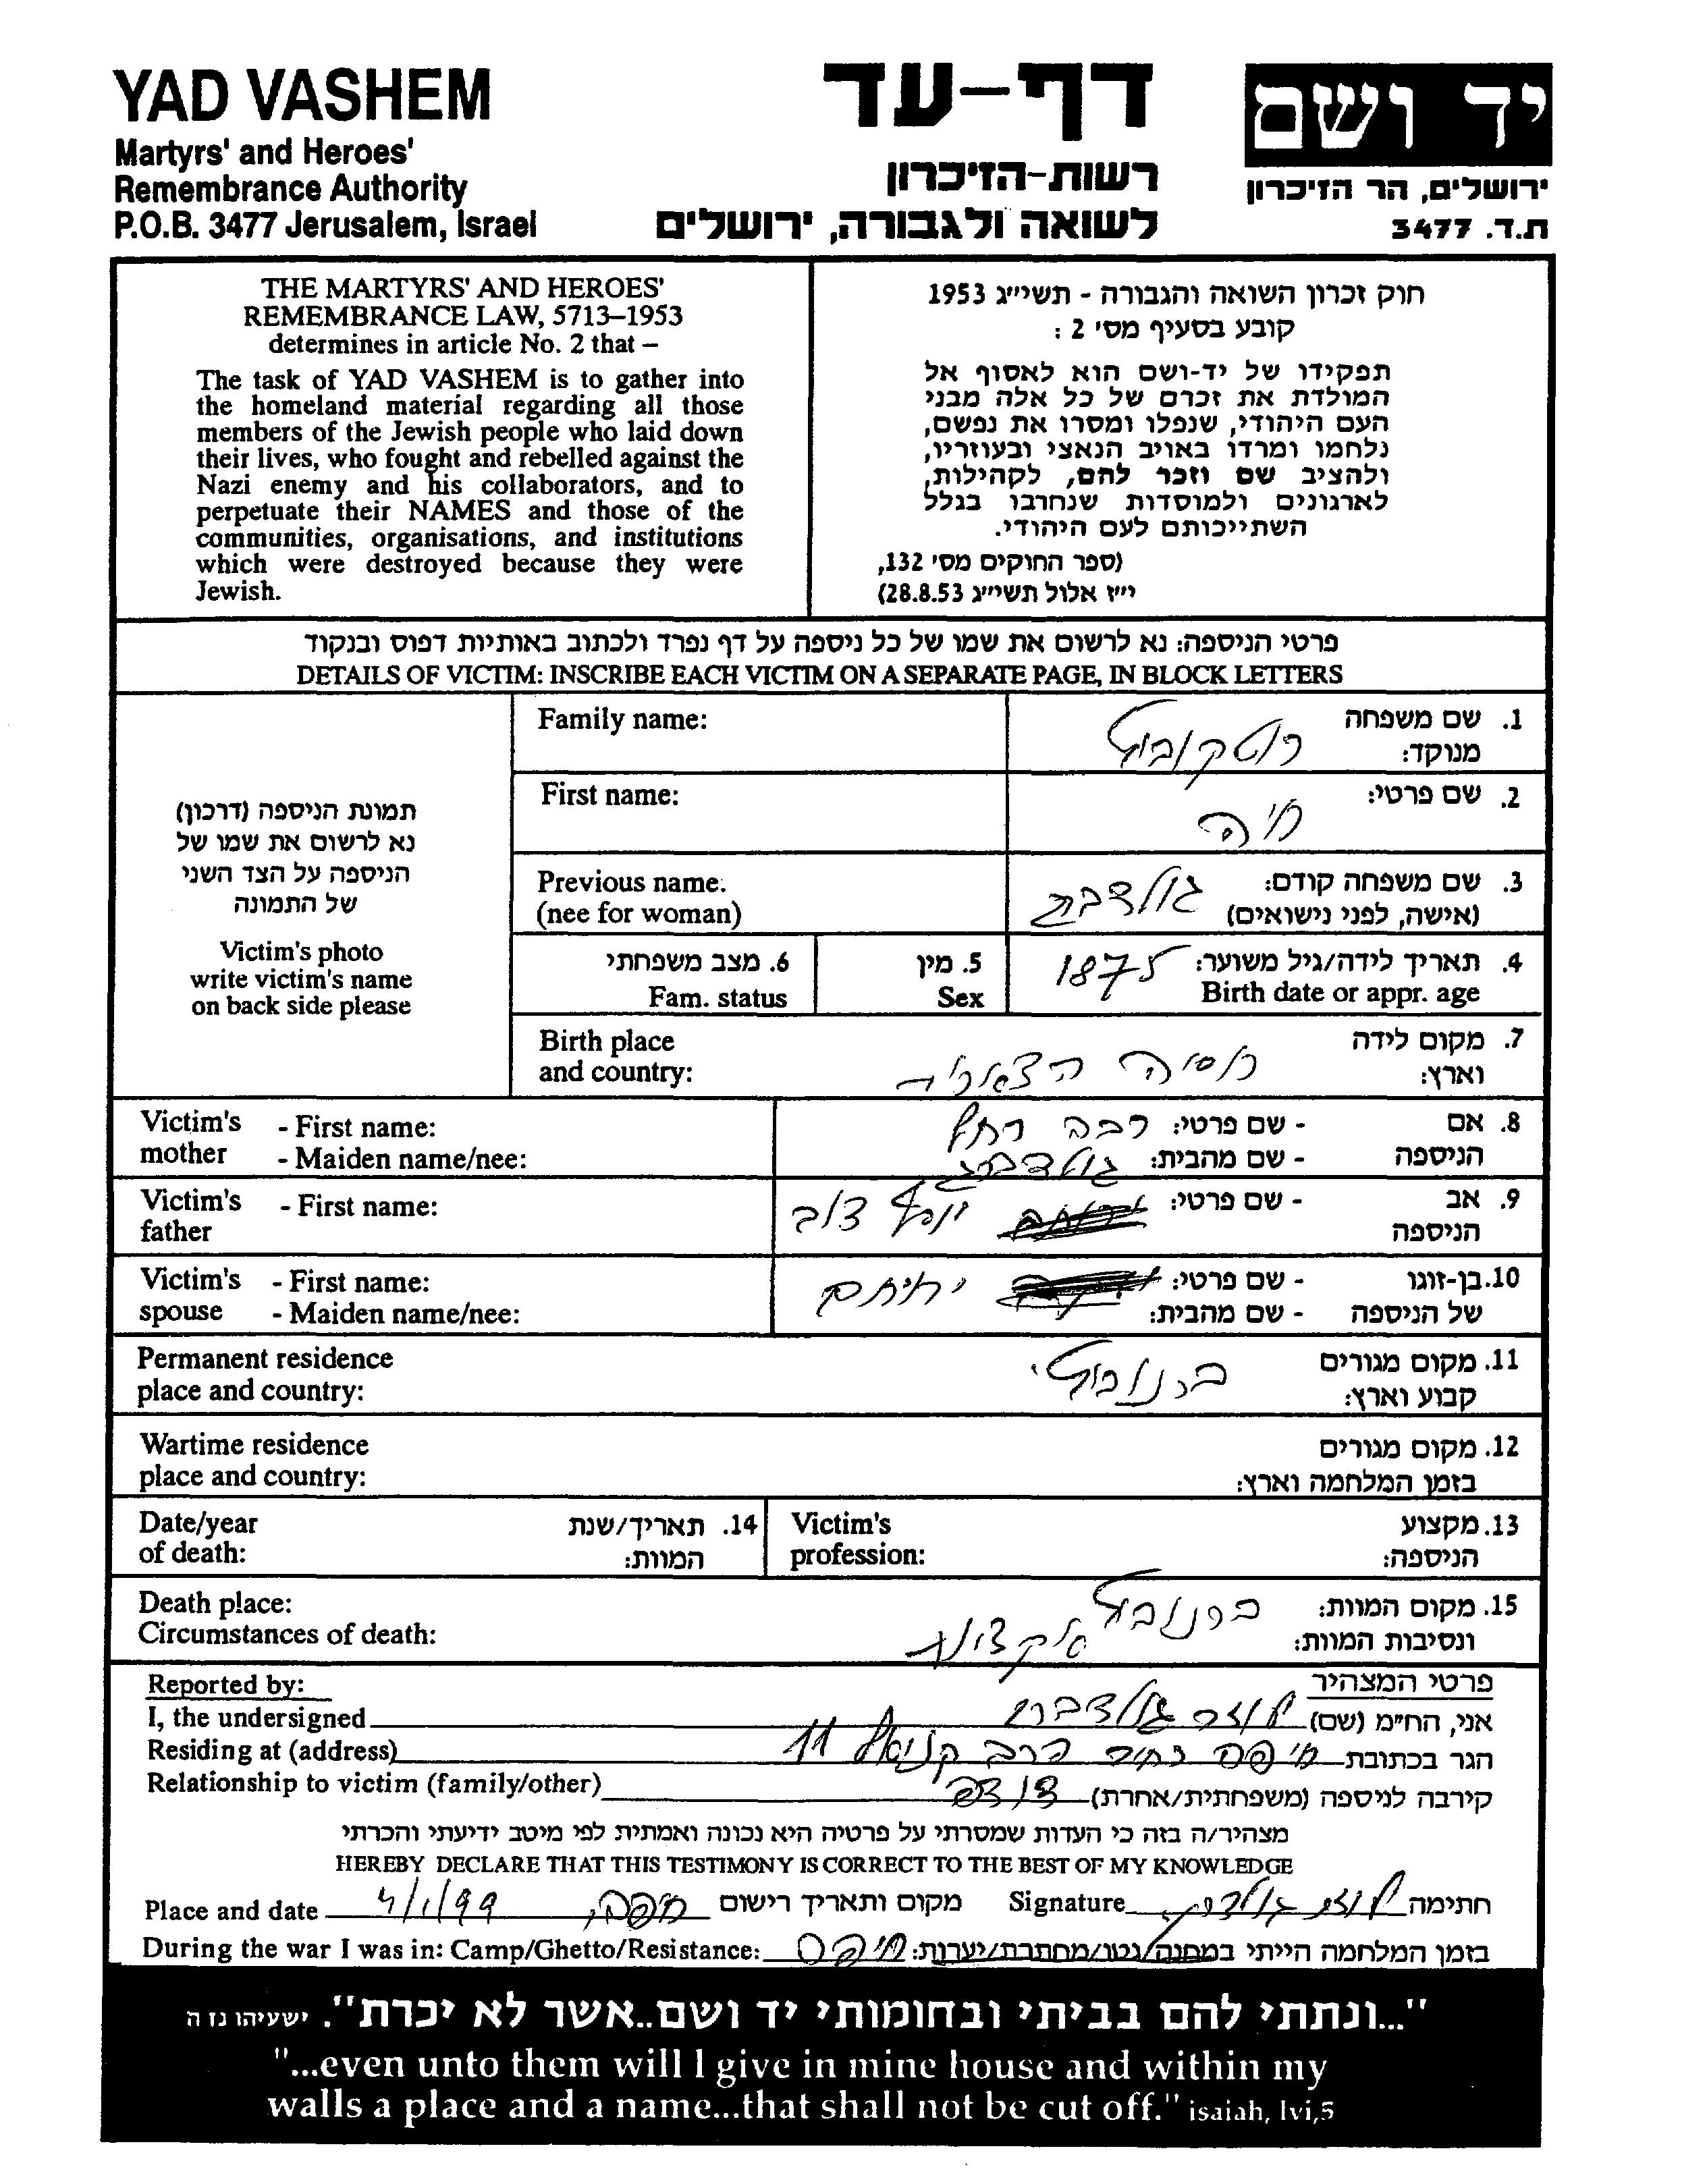 YAD VASHEM
Martyrs' and Heroes'
Remembrance Authority
P.O.B. 3477 Jerusalem, Israel
דף-עד
רשות-הזיכרון
לשואה ולגבורה, ירושלים
יד ושם
ירושלים, הר הזיכרון
ת.ד. 3477
THE MARTYRS' AND HEROES'
REMEMBRANCE LAW, 5713–1953
determines in article No. 2 that –
The task of YAD VASHEM is to gather into
the homeland material regarding all those
members of the Jewish people who laid down
their lives, who fought and rebelled against the
Nazi enemy and his collaborators, and to
perpetuate their NAMES and those of the
communities, organisations, and institutions
which were destroyed because they were
Jewish.
חוק זכרון השואה והגבורה - תשי״ג 1953
קובע בסעיף מס׳ 2 :
תפקידו של יד-ושם הוא לאסוף אל
המולדת את זכרם של כל אלה מבני
העם היהודי, שנפלו ומסרו את נפשם,
נלחמו ומרדו באויב הנאצי ובעוזריו,
ולהציב שם וזכר להם, לקהילות,
לארגונים ולמוסדות שנחרבו בגלל
השתייכותם לעם היהודי.
(ספר החוקים מס׳ 132,
י״ז אלול תשי״ג 28.8.53)
פרטי הניספה: נא לרשום את שמו של כל ניספה על דף נפרד ולכתוב באותיות דפוס ובנקוד
DETAILS OF VICTIM: INSCRIBE EACH VICTIM ON A SEPARATE PAGE, IN BLOCK LETTERS
תמונת הניספה (דרכון)
נא לרשום את שמו של
הניספה על הצד השני
של התמונה
Victim's photo
write victim's name
on back side please
Family name:
1. שם משפחה
מנוקד:
First name:
2. שם פרטי: חיה
Previous name:
(nee for woman)
3. שם משפחה קודם: גולדברג
(אישה, לפני נישואים)
4. תאריך לידה/גיל משוער: 1875
Birth date or appr. age
5. מין
Sex
6. מצב משפחתי
Fam. status
Birth place
and country:
7. מקום לידה
וארץ: רוסיה הצארית
Victim's mother - First name:
- Maiden name/nee:
8. אם - שם פרטי: רבה רחל
הניספה - שם מהבית: גולדברג
Victim's father - First name:
9. אב - שם פרטי: יוסף
הניספה
Victim's spouse - First name:
- Maiden name/nee:
10. בן-זוגו - שם פרטי: ירוחם
של הניספה - שם מהבית:
Permanent residence
place and country:
11. מקום מגורים
קבוע וארץ:
Wartime residence
place and country:
12. מקום מגורים
בזמן המלחמה וארץ:
Date/year
of death:
14. תאריך/שנת
המוות:
Victim's
profession:
13. מקצוע
הניספה:
Death place:
Circumstances of death:
15. מקום המוות:
ונסיבות המוות:
Reported by:
I, the undersigned
Residing at (address)
Relationship to victim (family/other)
פרטי המצהיר
אני, הח״מ (שם) גולדברג
הגר בכתובת חיפה 11
קירבה לניספה (משפחתית/אחרת) דודה
מצהיר/ה בזה כי העדות שמסרתי על פרטיה היא נכונה ואמתית לפי מיטב ידיעתי והכרתי
HEREBY DECLARE THAT THIS TESTIMONY IS CORRECT TO THE BEST OF MY KNOWLEDGE
Place and date 4/1/99 חיפה, מקום ותאריך רישום
Signature חתימה
During the war I was in: Camp/Ghetto/Resistance: בזמן המלחמה הייתי במחנה/גטו/מחתרת/יערות: חיפה
"...ונתתי להם בביתי ובחומותי יד ושם..אשר לא יכרת". ישעיהו נז ה
"...even unto them will I give in mine house and within my
walls a place and a name...that shall not be cut off." isaiah, lvi,5